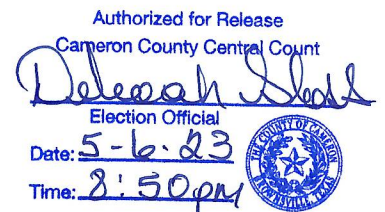 Authorized for Release
Cameron County Central Count
Deborah
Election Official
Date: 5-6-23
Time: 8:50pm
THE COUNTY OF CAMERON
BROWNSVILLE, TEXAS